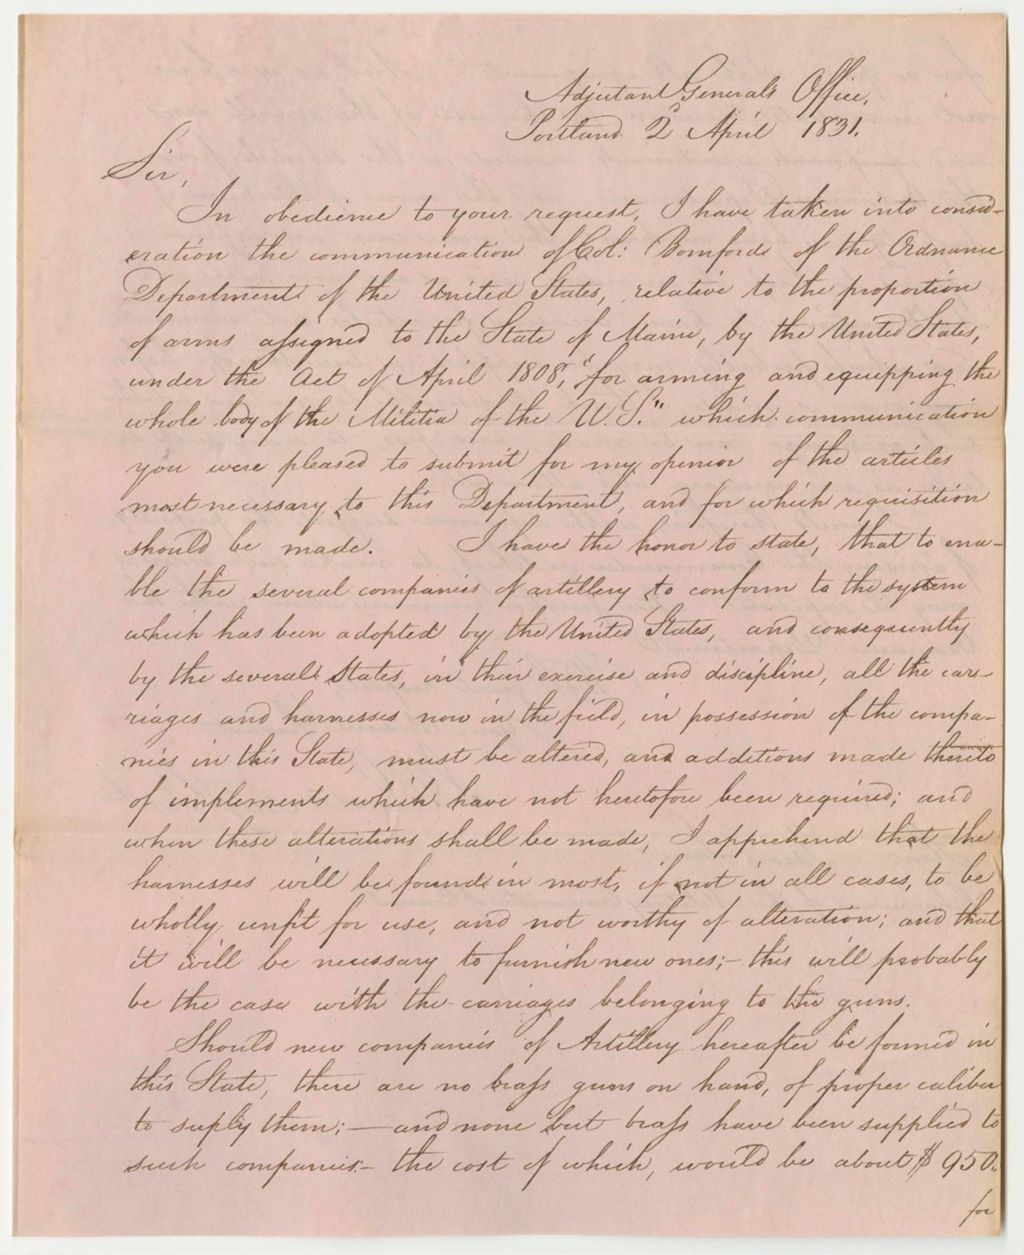 Adjutant General's Office,
Portland 2d April 1831.
Sir,
In obedience to your request, I have taken into consid-
eration the communication of Col: Bomford of the Ordnance
Department of the United States, relative to the proportion
of arms assigned to the State of Maine, by the United States,
under the Act of April 1808, "for arming and equipping the
whole body of the Militia of the U.S." which communication
you were pleased to submit for my opinion of the articles
most necessary to this Department, and for which requisition
should be made. I have the honor to state, that to ena-
ble the several companies of artillery to conform to the system
which has been adopted by the United States, and consequently
by the several States, in their exercise and discipline, all the car-
riages and harnesses now in the field, in possession of the compa-
nies in this State, must be altered, and additions made thereto
of implements which have not heretofore been required; and
when these alterations shall be made, I apprehend that the
harnesses will be found in most, if not in all cases, to be
wholly unfit for use, and not worthy of alteration; and that
it will be necessary to furnish new ones;- this will probably
be the case with the carriages belonging to the guns.
Should new companies of Artillery hereafter be formed in
this State, there are no brass guns on hand, of proper caliber
to suply them;- and none but brass have been supplied to
such companies- the cost of which, would be about $950.
for